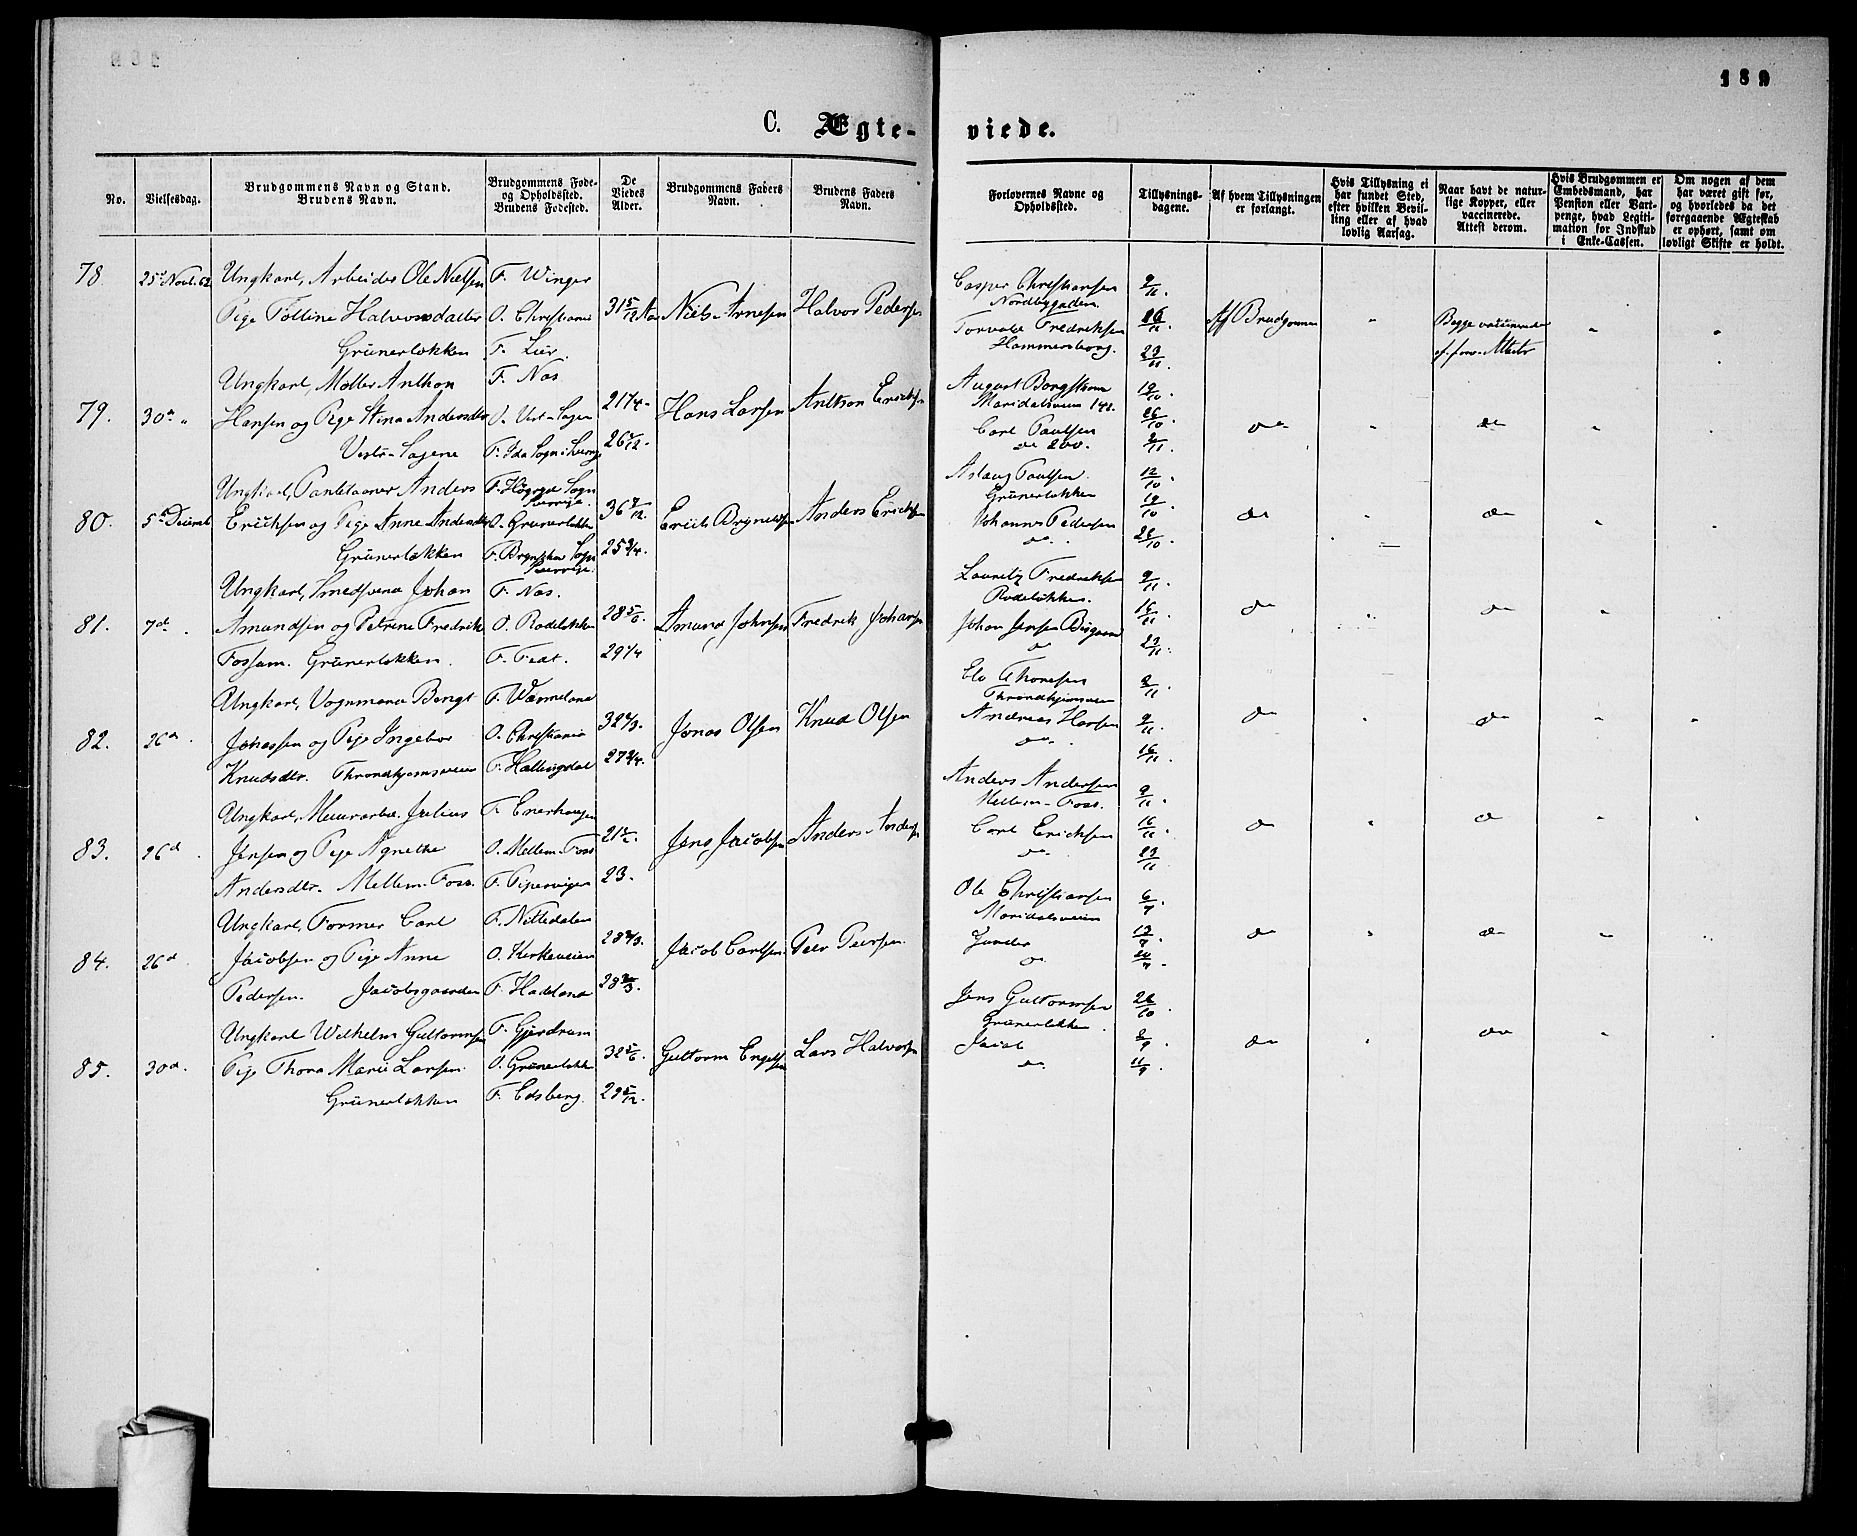 189
C. Ægte-
viede.
No.
Vielsesdag.
Brudgommens Navn og Stand.
Brudens Navn.
Brudgommens Føde-
og Opholdssted.
Brudens Fødested.
De
Viedes
Alder.
Brudgommens Faders
Navn.
Brudens Faders
Navn.
Forlovernes Navne og
Opholdssted.
Tillysnings-
dagene.
Af hvem Tillysningen
er forlangt.
Hvis Tillysning ei
har fundet Sted,
efter hvilken Bevil-
ling eller af hvad
lovlig Aarsag.
Naar havt de natur-
lige Kopper, eller
vaccinerede.
Attest derom.
Hvis Brudgommen er
Embedsmand, har
Pension eller Vart-
penge, hvad Legiti-
mation for Indskud
i Enke-Cassen.
Om nogen af dem
har været gift før,
og hvorledes da det
foregaaende Ægteskab
er ophørt, samt om
lovligt Skifte er holdt.
78.
25de Novb. 62
Ungkarl, Arbeider Ole Nielsen
Pige Halvorsdatter
Grünerløkken
F. Winger
O. Christiania
F. Lier.
31 5/12
Niels Arnesen
Halvor Pedersen
Casper Christiansen
Nordbygaden
Torvald Fredriksen
Hammersborg.
9/11
16/11
23/11
Af Brudgommen
Begge vaccinerede
Attester
79.
30te "
Ungkarl, Møller Anthon
Hansen og Pige Stina Andersdtr
Vestr-Sagene
F. Næs
O. Vest-Sagen
F. Sogn i Sverrig
21 1/4
26 /12
Hans Larsen
Anthon Ericksen
August Bergstrøm
Maridalsveien 148.
Carl Paulsen
do 200.
19/10
26/10
2/11
do
do
80.
5te Decemb
Ungkarl, Anders
Ericksen og Pige Anne Andersdtr
Grünerløkken
F. Sogn
Sverrige
O. Grünerløkken
F. Sogn
Sverrige.
36 /12
25 3/4
Anders Ericksen
Aslaug Paulsen
Grünerløkken
Johannes Pedersen
do
12/10
19/10
26/10
do
do
81.
7de
Ungkarl, Smedsvend Johan
Amundsen og Petrine Fredrikke
Fossum. Grünerløkken.
F. Næs.
O. Rodeløkken
F. Fedt.
28 5/6
29 1/4
Amund Johnsen
Fredrik Johansen
Lauritz Fredriksen
Rodeløkken.
Johan Jensen
do
9/11
16/11
23/11
do
do
82.
26de
Ungkarl, Vognmand Bengt
Jonassen og Pige Ingebor
Knudsdtr. Throndhjemsveien
F. Wærmeland
O. Christiania
F. Hallingdal
32 2/3
27 3/4
Jonas Olsen
Knud Olsen
Thoresen
Throndhjemsveien
Andreas Hansen
do
2/11
9/11
16/11
do
do
83.
26de
Ungkarl, Murarbd. Julius
Jensen og Pige Agnethe
Andersdtr. Mellem-Foss.
F. Enerhaugen
O. Mellem-Foss
F. Pipervigen
21 1/2
23.
Jens Jacobsen
Anders Andersen
Anders Andersen
Mellem-Foss.
Carl Ericksen
do
9/11
16/11
23/11
do
do
84.
26de
Ungkarl, Former Carl
Jacobsen og Pige Anne
Pedersen. Jacobsgaarden
F. Nittedalen
O. Kirkeveien
F. Hadeland
28 2/3
28 2/3
Jacob Carlsen
Peder Pedersen
Ole Christiansen
Maridalsveien
Gunder
do
6/7
13/7
20/7
do
do
85.
30de
Ungkarl Wilhelm Guttormsen
Pige Thora Marie Larsen
Grünerløkken
F. Gjerdrum
O. Grünerløkken
F. Edsberg.
32 5/6
29 5/12
Guttorm Engelsen
Lars Halvorsen
Jens Guttormsen
Grünerløkken
Jacob
do
26/10
2/9
11/9
do
do